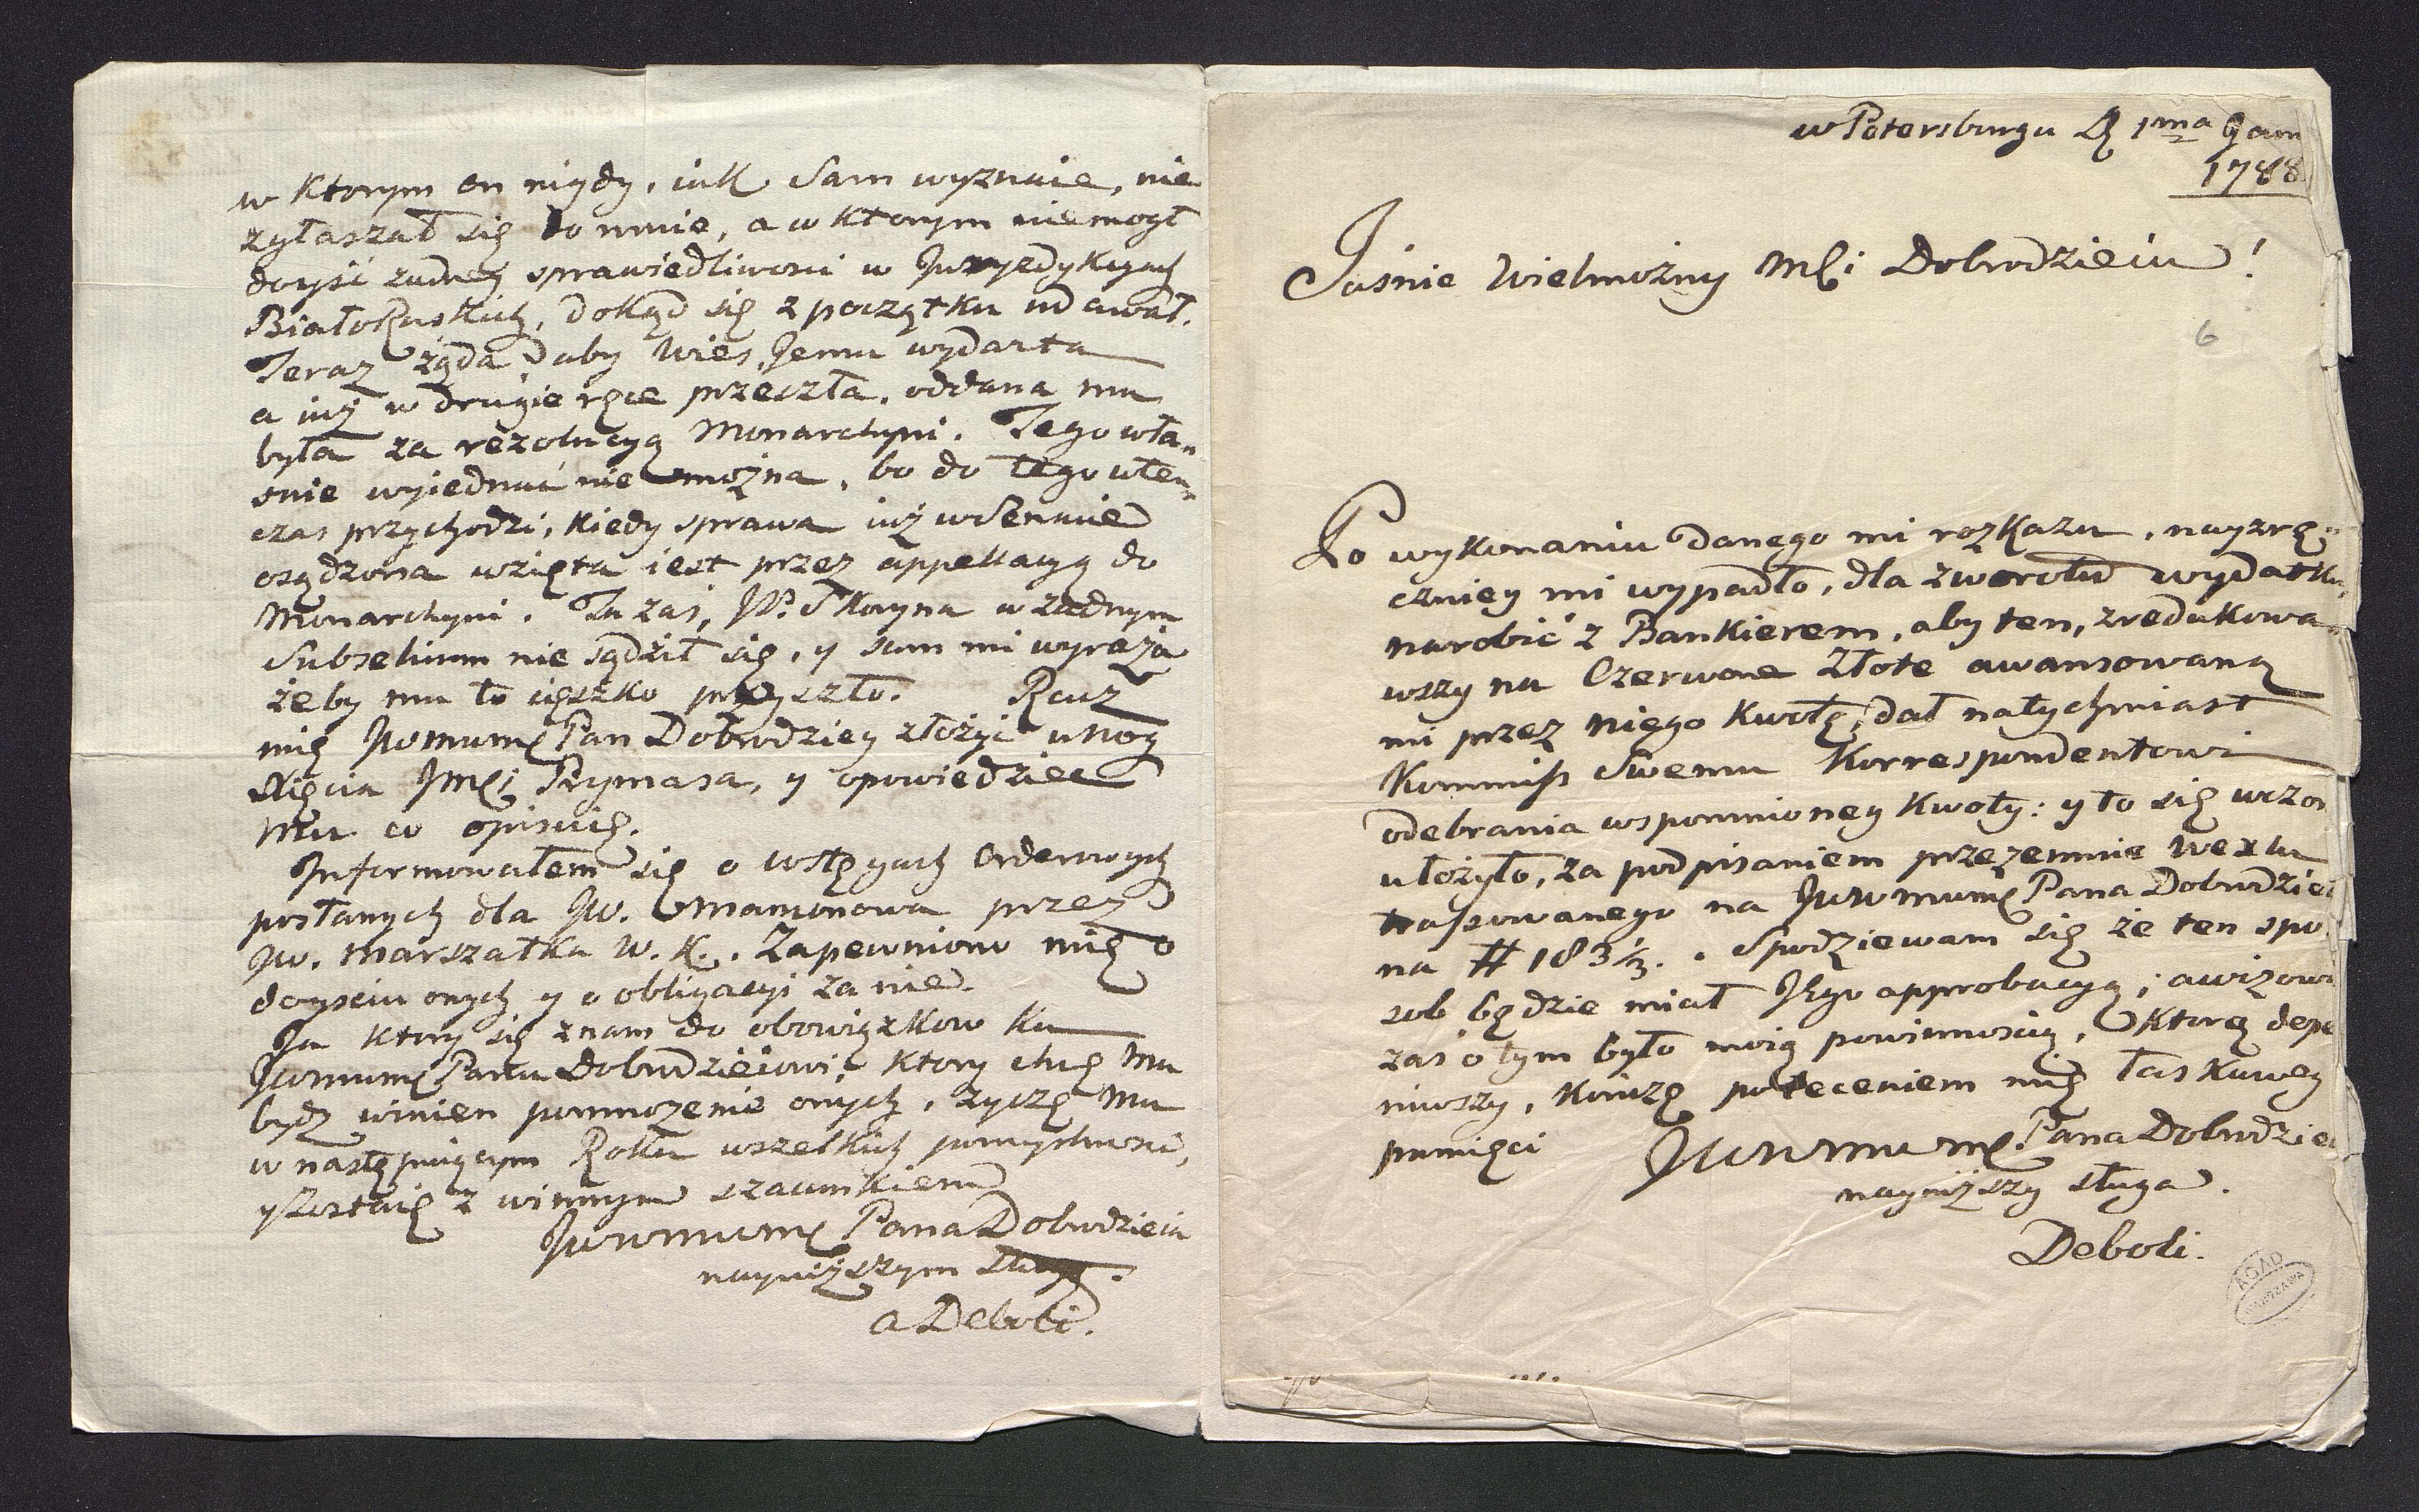 w ktorym on nigdy, iak Sam wyznaie, nie
zgłaszał się do mnie, a w ktorym nie mogł
doyść zadney sprawiedliwosci w Juryzdykcyach
BiałoRuskich, dokąd się z początku udawał.
Teraz żąda, aby Wies Jemu wydarta
a iuż w drugie ręce przeszła, oddana mu
była za rezolucyą Monarchyni. Tego wła„
snie wyiednać nie można, bo do tego wten„
czas przychodzi, kiedy sprawa iuż w Senacie
osądzona wzięta iest przez appellacyą do
Monarchyni. Tu zaś, JP. Skoryna w żadnym
Subselium nie sądził się, y sam mi wyraża
żeby mu to cięszko przyszło. Racz
mię Jwmumć Pan Dobrodziey złożyć u nog
Xięcia Jmci Prymasa, y opowiedziec
Mu co opisuię.
Informowałem się o wstęgach Orderowych
posłanych dla Jw. Mamonowa przez
Jw. Marszałka W. K.. Zapewniono mię o
doysciu onych y o obligacyi za nie.
Ja ktory się znam do obowiązkow ku
Jwmumć Panu Dobrodzieiowi, ktory chcę Mu
bydz winien pomnożenie onych, życzę Mu
w następuiącym Roku wszelkich pomyslnosci,
y Zostaię z winnym szacunkiem
Jwwmumć Pana Dobrodzieia
nayniższym sługą.
a Deboli.
w Petersburgu D 1ma Jan
1788
Jaśnie Wielmożny Mći Dobrodzieiu!
6
Po wykonaniu danego mi rozkazu, nayzrę„
czniey mi wypadło, dla zwrotu wydatku,
narobić z Bankierem, aby ten, zredukowa„
wszy na Czerwone Złote awansowaną
mi przez niego kwotę, dał natychmiast
Kommiss Swemu Korrespondentowi
odebrania wspomnioney kwoty: y to się wczor
ułożyło, za podpisaniem przezemnie Wexlu
trassowanego na Jwwmumć Pana Dobrodziei
na # 183 1/3. . Spodziewam się że ten spo
sob będzie miał Jego approbacyą; awizowa
zaś o tym było moią powinnoscią, Ktorą depe
niwszy, kończę poleceniem mię łaskawey
pamięci Jwwmumć Pana Dobrodziei
nayniższy sługa.
Deboli.
AGAD
WARSZAWA